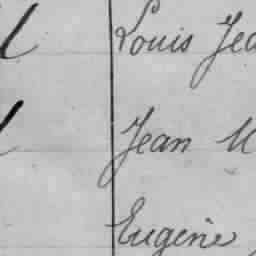 Louis Jea
Jean M
Eugène